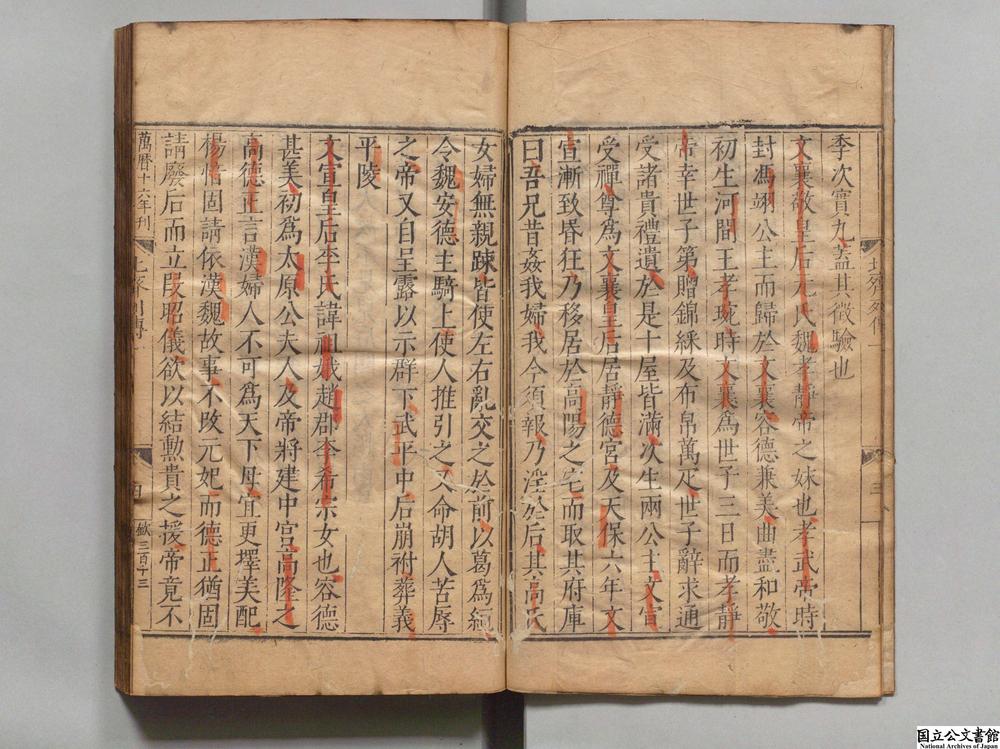 季次實九蓋其徵驗也
文襄敬皇后元氏魏孝靜帝之妹也孝武帝時
封馮翊公主而歸於文襄容德兼美曲盡和敬
初生河間王孝琬時文襄爲世子三日而孝靜
帝幸世子第贈錦綵及布帛萬疋世子辭求通
受諸貴禮遺於是十屋皆滿次生兩公主文宣
受禪尊爲文襄皇后居靜德宮及天保六年文
宣漸致昬狂乃移居於高陽之宅而取其府庫
曰吾兄昔姦我婦我今須報乃淫於后其高氏
女婦無親踈皆使左右亂交之於前以葛爲絙
令魏安德主騎上使人推引之又命胡人苦辱
之帝又自呈露以示群下武平中后崩祔葬義
平陵
文宣皇后李氏諱祖娥趙郡李希宗女也容德
甚美初爲太原公夫人及帝將建中宮高隆之
高德正言漢婦人不可爲天下母宜更擇美配
楊愔固請依漢魏故事不改元妃而德正猶固
請廢后而立段昭儀欲以結勳貴之援帝竟不
萬曆十六年刊
三百十三
国立公文書館
National Archives of Japan